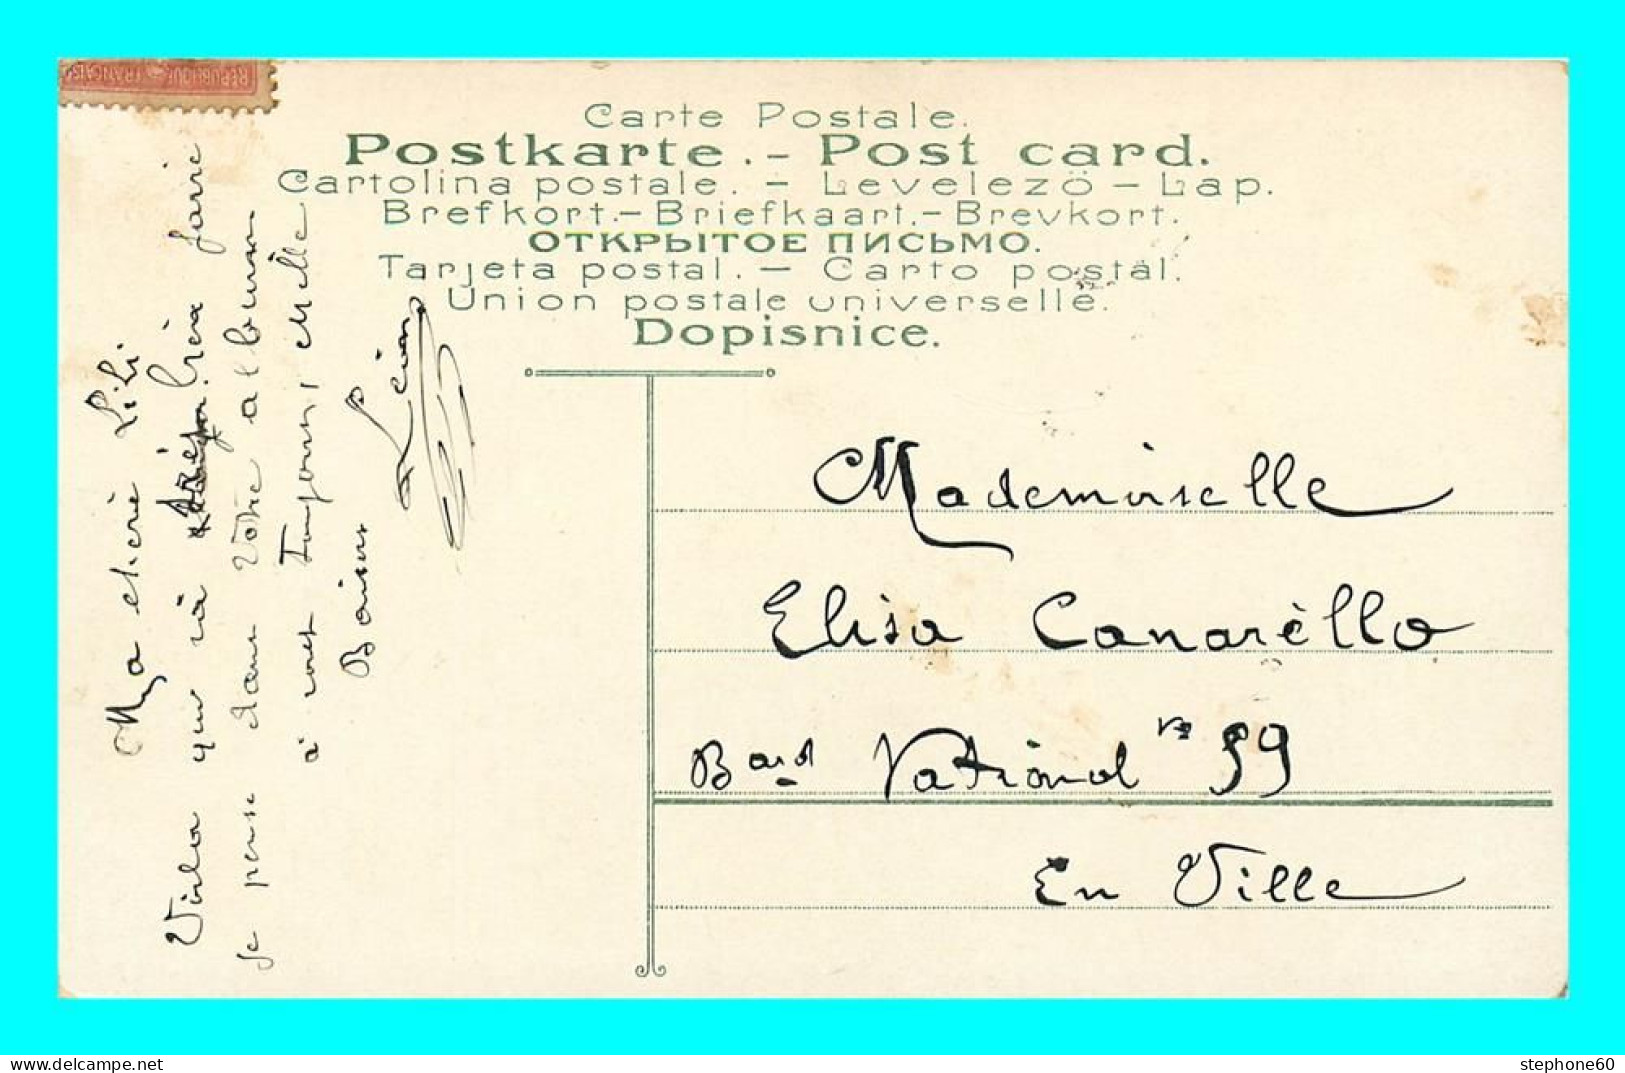 REPUBLIQUE FRANÇAIS
Carte Postale.
Postkarte. - Post card.
Cartolina postale. - Levelezö - Lap.
Brefkort. - Briefkaart. - Brevkort.
ОТКРЫТОЕ ПИСЬМО.
Tarjeta postal. - Carto postăl.
Union postale universelle.
Dopisnice.
Ma cherie Lili
Voila qui va bien faire
dans votre album
Je pense à vous toujours, Mlle
Baisers
Léon
Mademoiselle
Elisa Canarèllo
Bard National n° 59
En Ville
stephone60